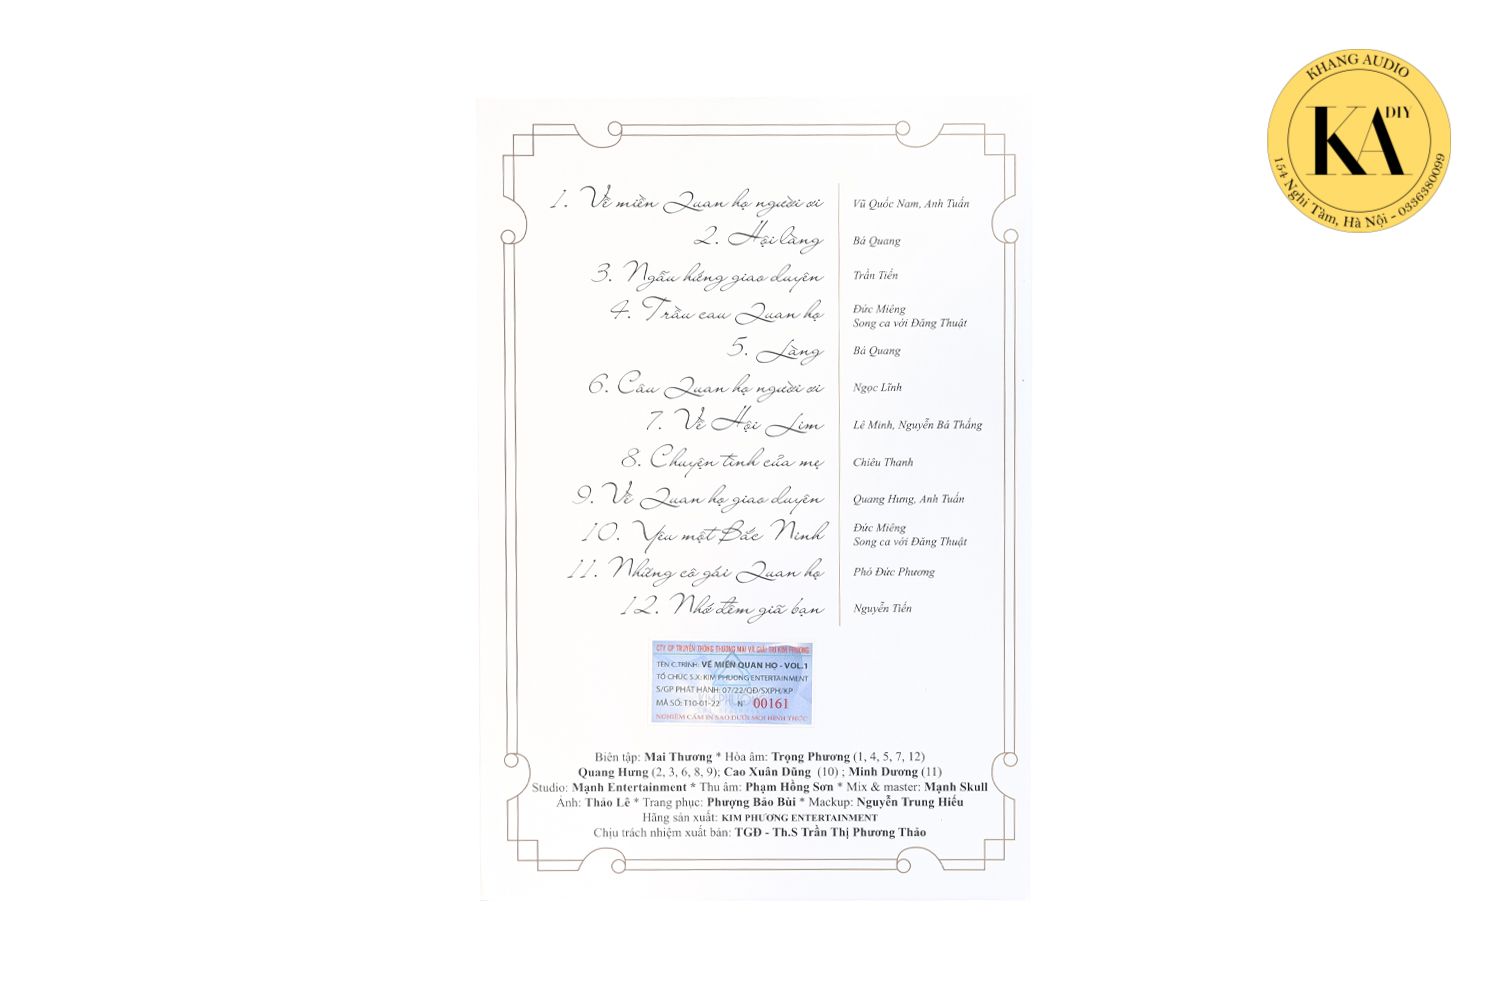 KHANG AUDIO
KA DIY
154 Nghi Tàm, Hà Nội - 0336380099
1. Về miền Quan họ người ơi
Vũ Quốc Nam, Anh Tuấn
2. Hội làng
Bá Quang
3. Ngẫu hứng giao duyên
Trần Tiến
4. Trầu cau Quan họ
Đức Miêng
Song ca với Đăng Thuật
5. Làng
Bá Quang
6. Câu Quan họ người ơi
Ngọc Lĩnh
7. Về Hội Lim
Lê Minh, Nguyễn Bá Thắng
8. Chuyện tình của mẹ
Chiêu Thanh
9. Về Quan họ giao duyên
Quang Hưng, Anh Tuấn
10. Yêu một Bắc Ninh
Đức Miêng
Song ca với Đăng Thuật
11. Những cô gái Quan họ
Phó Đức Phương
12. Nhớ đêm giã bạn
Nguyễn Tiến
CTY CP TRUYỀN THÔNG THƯƠNG MẠI VÀ GIẢI TRÍ KIM PHƯƠNG
TÊN C.TRÌNH: VỀ MIỀN QUAN HỌ - VOL.1
TỔ CHỨC S.X: KIM PHUONG ENTERTAINMENT
S/GP PHÁT HÀNH: 07/22/QĐ/SXPH/KP
MÃ SỐ: T10-01-22 N° 00161
NGHIÊM CẤM IN SAO DƯỚI MỌI HÌNH THỨC
Biên tập: Mai Thương * Hòa âm: Trọng Phương (1, 4, 5, 7, 12)
Quang Hưng (2, 3, 6, 8, 9); Cao Xuân Dũng (10) ; Minh Dương (11)
Studio: Mạnh Entertainment * Thu âm: Phạm Hồng Sơn * Mix & master: Mạnh Skull
Ảnh: Thảo Lê * Trang phục: Phượng Bảo Bùi * Mackup: Nguyễn Trung Hiếu
Hãng sản xuất: KIM PHƯƠNG ENTERTAINMENT
Chịu trách nhiệm xuất bản: TGĐ - Th.S Trần Thị Phương Thảo